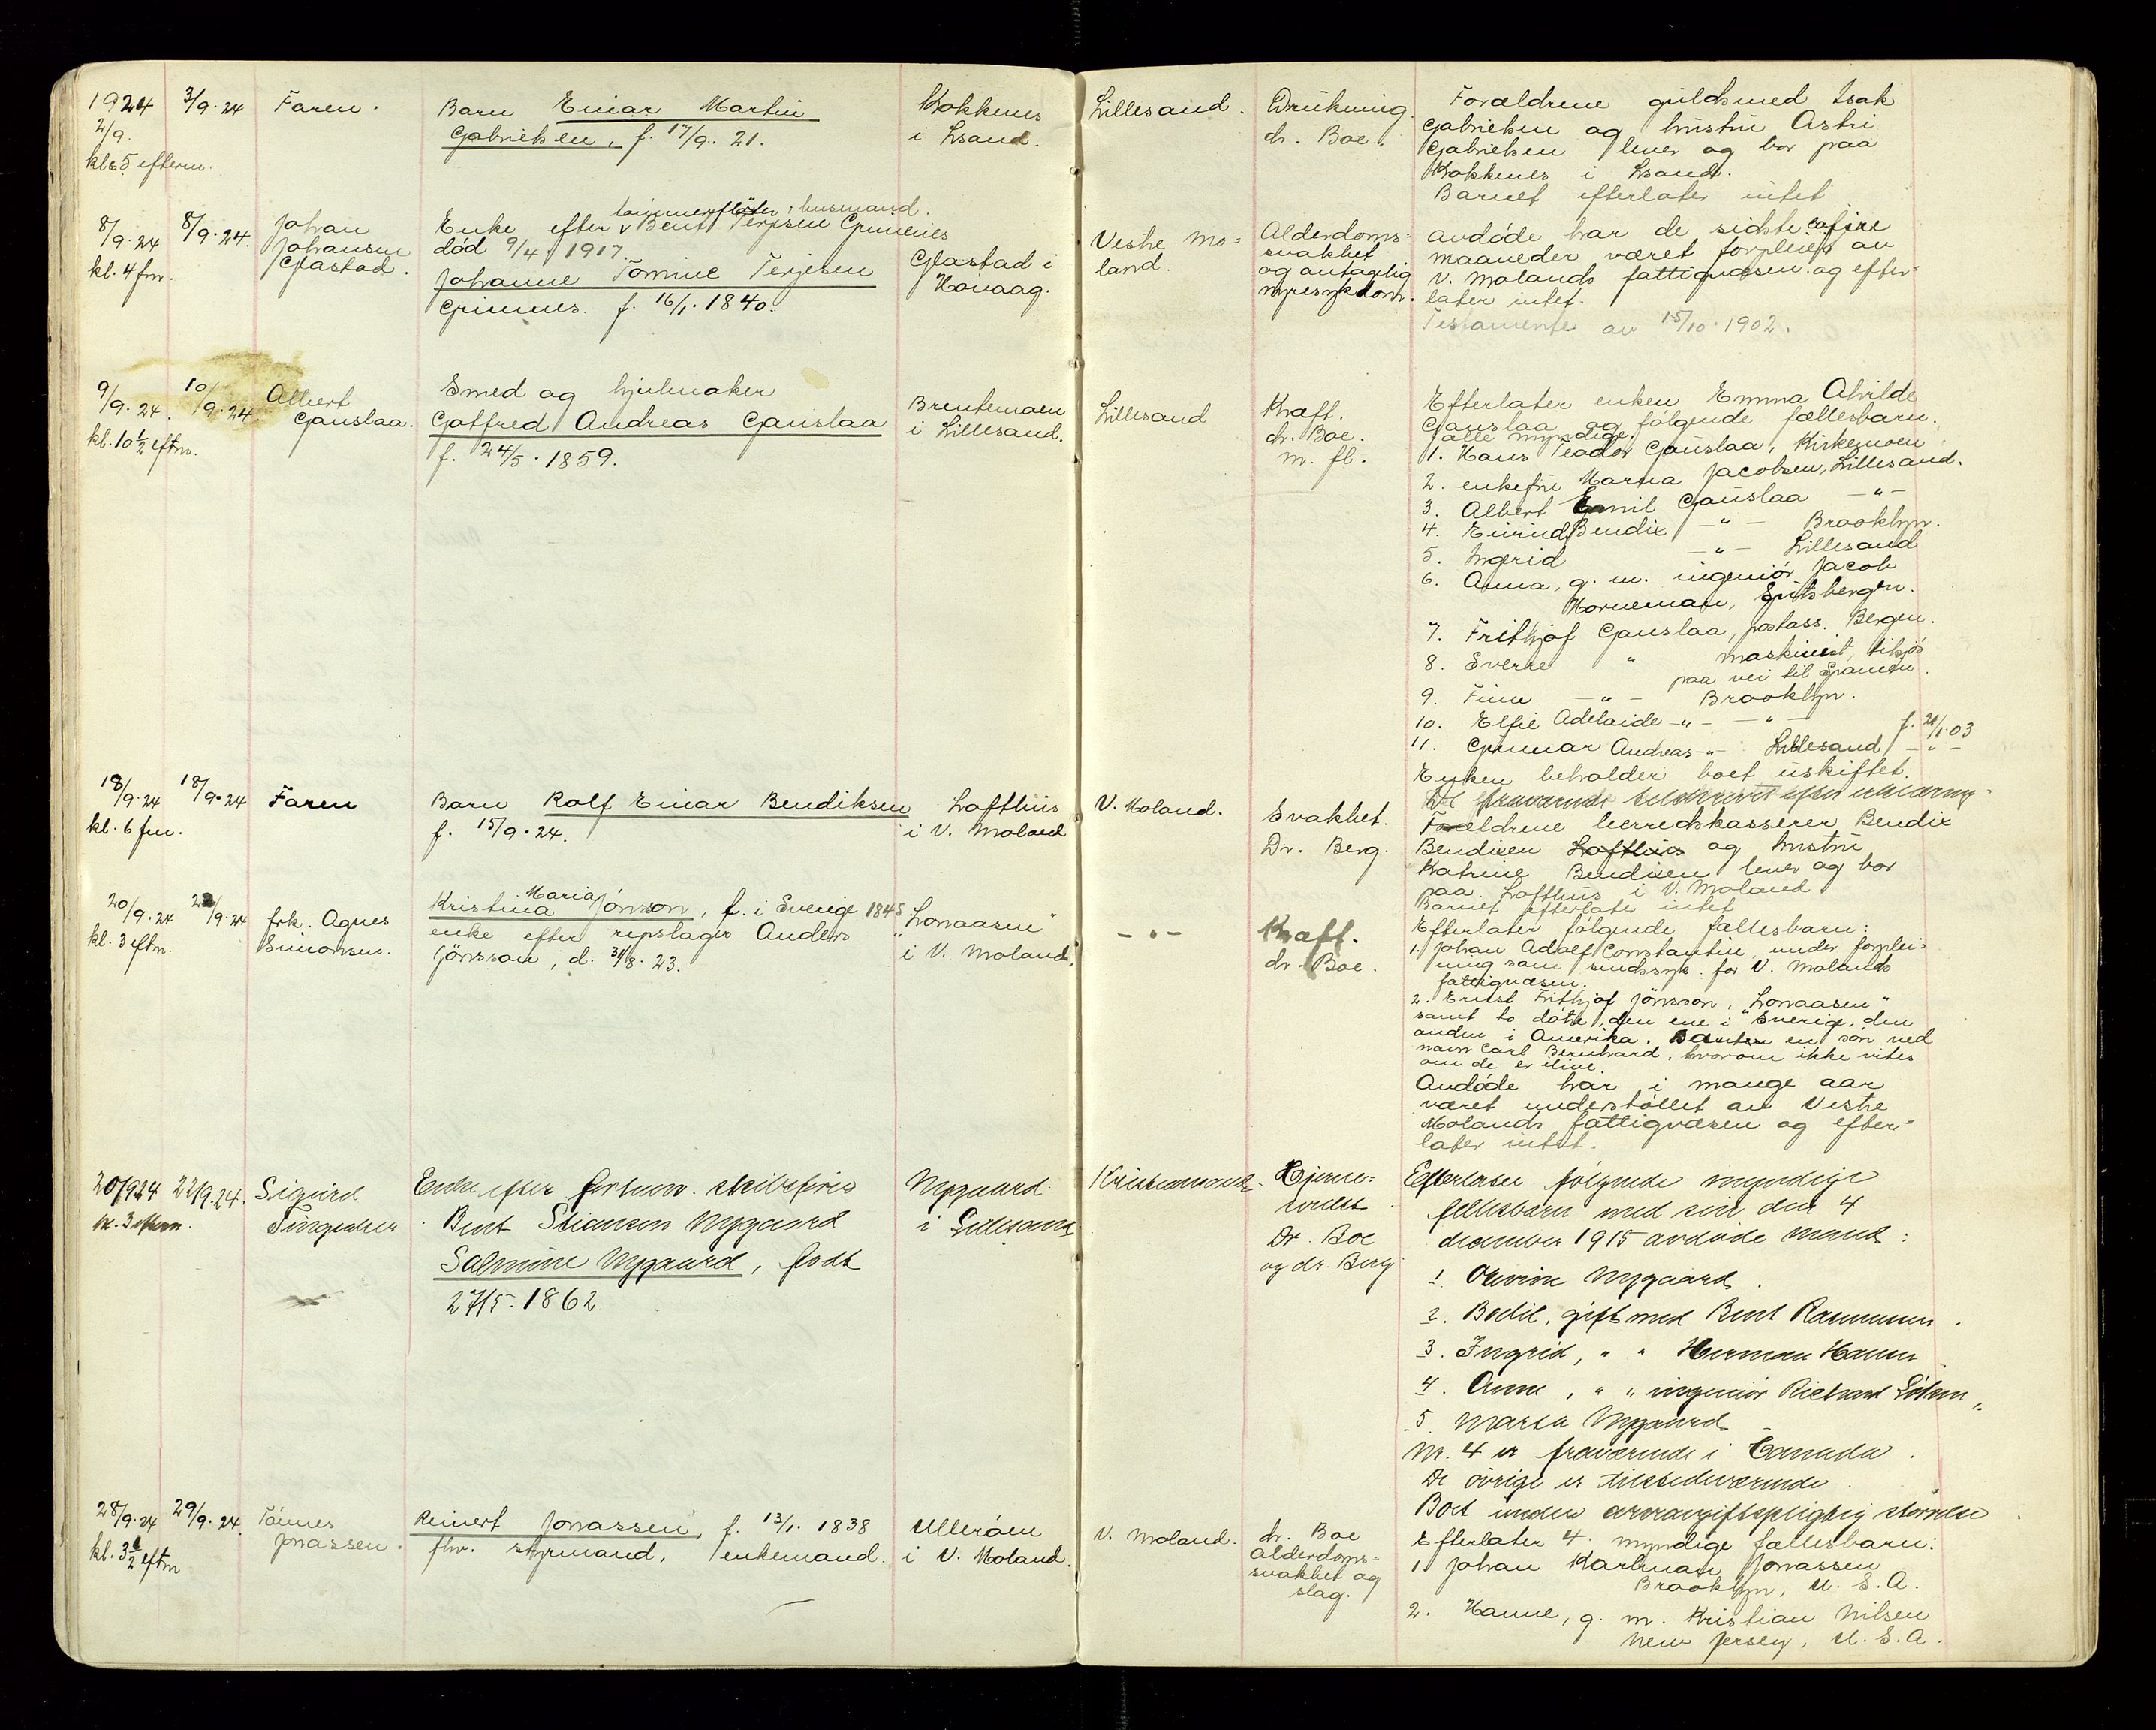 1924
2/9.
kl. 5 efterm.
3/9.24
Faren.
Barn Einar Martin
Gabrielsen, f. 17/9. 21.
Kokkenes
i Lsand.
Lillesand.
Drukning.
dr. Boe.
Forældrene guldsmed Isak
Gabrielsen og hustru Astri
Gabrielsen lever og bor paa
Kokkenes i Lsand.
Barnet efterlater intet
8/9.24
kl. 4 fm.
8/9.24.
Johan
Johansen
Glastad.
tømmerfløter, husmand.
Enke efter Bent Terjesen Grimenes
død 9/4 1917.
Johanne Tomine Terjesen
Grimnes. f. 16/1. 1840.
Glastad i
Høvaag.
Vestre Mo-
land.
Alderdoms-
svakhet
og antagelig
nyresykdom.
Avdøde har de sidste ca fire
maaneder været forpleiet av
V. Molands fattigvæsen og efter-
later intet.
Testamente av 15/10.1902.
9/9.24.
kl. 10 1/2 eftm.
10/9.24
Albert
Gauslaa.
Smed og hjulmaker
Gotfred Andreas Gauslaa
f. 24/5. 1859.
Brentemoen
i Lillesand.
Lillesand
Kræft.
dr. Boe.
m. fl.
Efterlater enken Emma Alvilde
Gauslaa og følgende fællesbarn.
alle myndige.
1. Hans Teodor Gauslaa, Kirkemoen
2. enkefru Marna Jacobsen, Lillesand.
3. Albert Emil Gauslaa -"-
4. Eivind Bendix -"- Brooklyn.
5. Ingrid -"- Lillesand
6. Anna, g. m. ingeniør Jacob
Horneman, Spitsbergen.
7. Frithjof Gauslaa, postass. Bergen.
8. Sverre " maskinist, tilsjøs
paa vei til Spanien.
9. Finn -"- Brooklyn.
10. Elfie Adelaide -"- -"- f. 21/1.03
11. Gunnar Andreas -"- Lillesand -"-
Enken beholder boet uskiftet.
18/9.24
kl. 6 fm.
18/9.24
Faren
Barn Rolf Einar Bendiksen
f. 15/9.24.
Lofthus
i V. Moland
V. Moland.
Svakhet.
Dr. Berg.
Forældrene herredskasserer Bendix
Bendixen Lofthus og hustru
Katrine Bendixen lever og bor
paa Lofthus i V. Moland
Barnet efterlater intet
20/9.24
kl. 3 eftm.
22/9.24
frk. Agnes
Simonsen.
Maria
Kristina Jönsson, f. i Sverige 1845
enke efter repslager Anders
Jönsson, d. 31/8. 23.
"Lonaasen"
i V. Moland.
-"-
Kræft.
dr. Boe.
Efterlater følgende fællesbarn:
1. Johan Adolf Constantin under forplei-
ning som sindssyk for V. Molands
fattigvæsen.
2. Ernst Frithjof Jönsson, "Lonaasen"
samt to døtre, den ene i Sverige, den
anden i Amerika. Samt en søn ved
navn Carl Bernhard, hvorom ikke vites
om de er ilive.
Avdøde har i mange aar
været understøttet av Vestre
Molands fattigvæsen og efter-
later intet.
20/9.24
kl. 3 efterm.
22/9.24.
Sigurd
Enke efter forhenv. skibsfører
Bent Stiansen Nygaard
Salmine Nygaard, født
27/5. 1862
Nygaard
i Lillesand
Hjerne-
Dr. Boe
og dr. Berg
Efterlater følgende myndige
fellesbarn med sin den 4
december 1915 avdøde mand:
1. Nygaard.
2. Bodil, gift med Bent Rasmussen.
3. Ingrid, " " Herman Hansen
4. Anna, " " ingeniør Richard
5. Marta Nygaard
Nr. 4 er fraværende i Canada.
De øvrige er tilstedeværende.
Boet under arveavgiftspligtig størrelse.
28/9.24
kl. 3 1/2 eftm
29/9.24.
Tønnes
Jonassen.
Reinert Jonassen, f. 13/1. 1838
fhv. styrmand, enkemand.
Ullerøen
i V. Moland.
V. Moland.
dr. Boe
alderdoms-
svakhet og
slag.
Efterlater 4 myndige fællesbarn:
1. Johan Karlman Jonassen
Brooklyn, U.S.A.
2. Hanne, g. m. Kristian Nilsen
New Jersey, U.S.A.